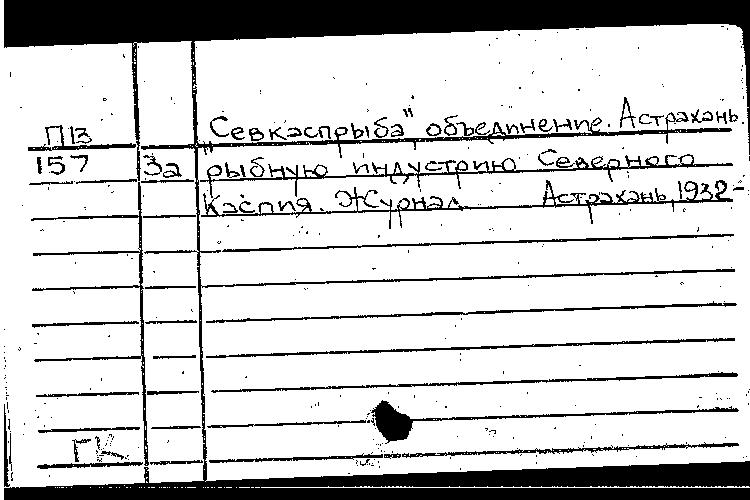 П13 „Севкаспрыба", объединение. Астрахань.
157 За рыбную индустрию Северного
Каспия. Журнал Астрахань, 1932-
ГК